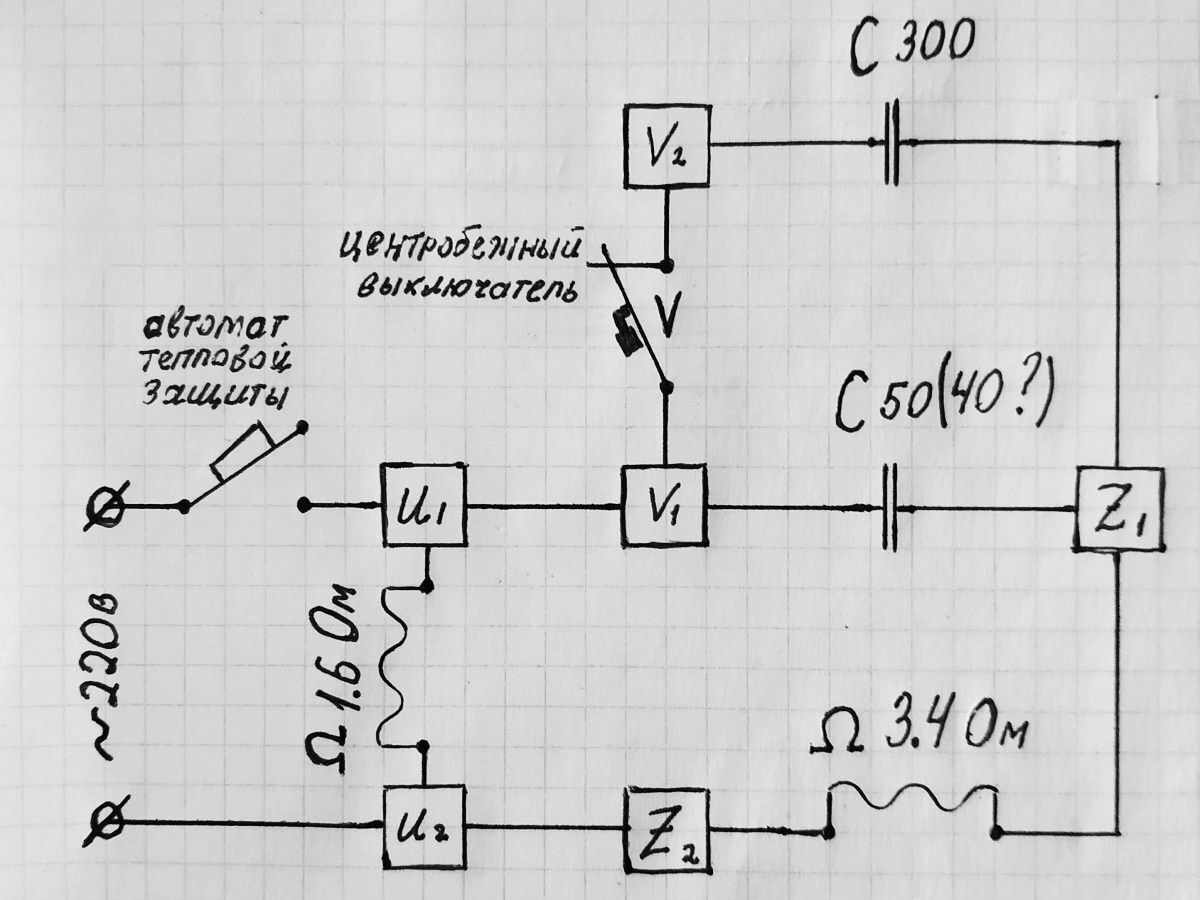 C 300
V2
центробежный
выключатель
V
автомат
тепловой
защиты
C 50(40?)
U1
V1
Z1
~220в
Ω 1.6 Ом
Ω 3.4 Ом
U2
Z2